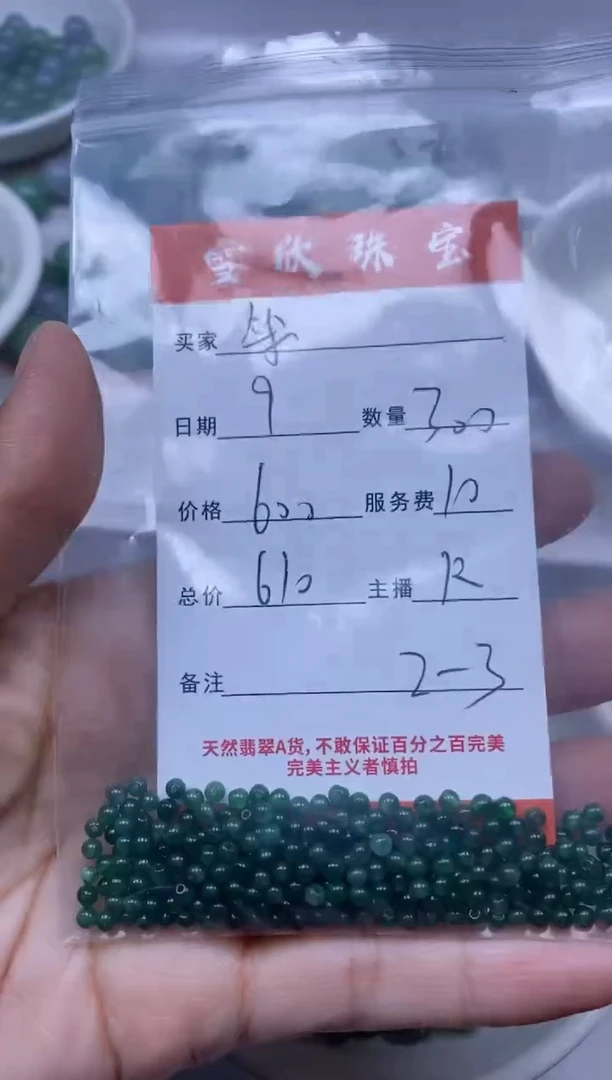 雪欣珠宝
买家
日期 9 数量 300
价格 600 服务费 10
总价 610 主播 R
备注 2-3
天然翡翠A货,不敢保证百分之百完美
完美主义者慎拍